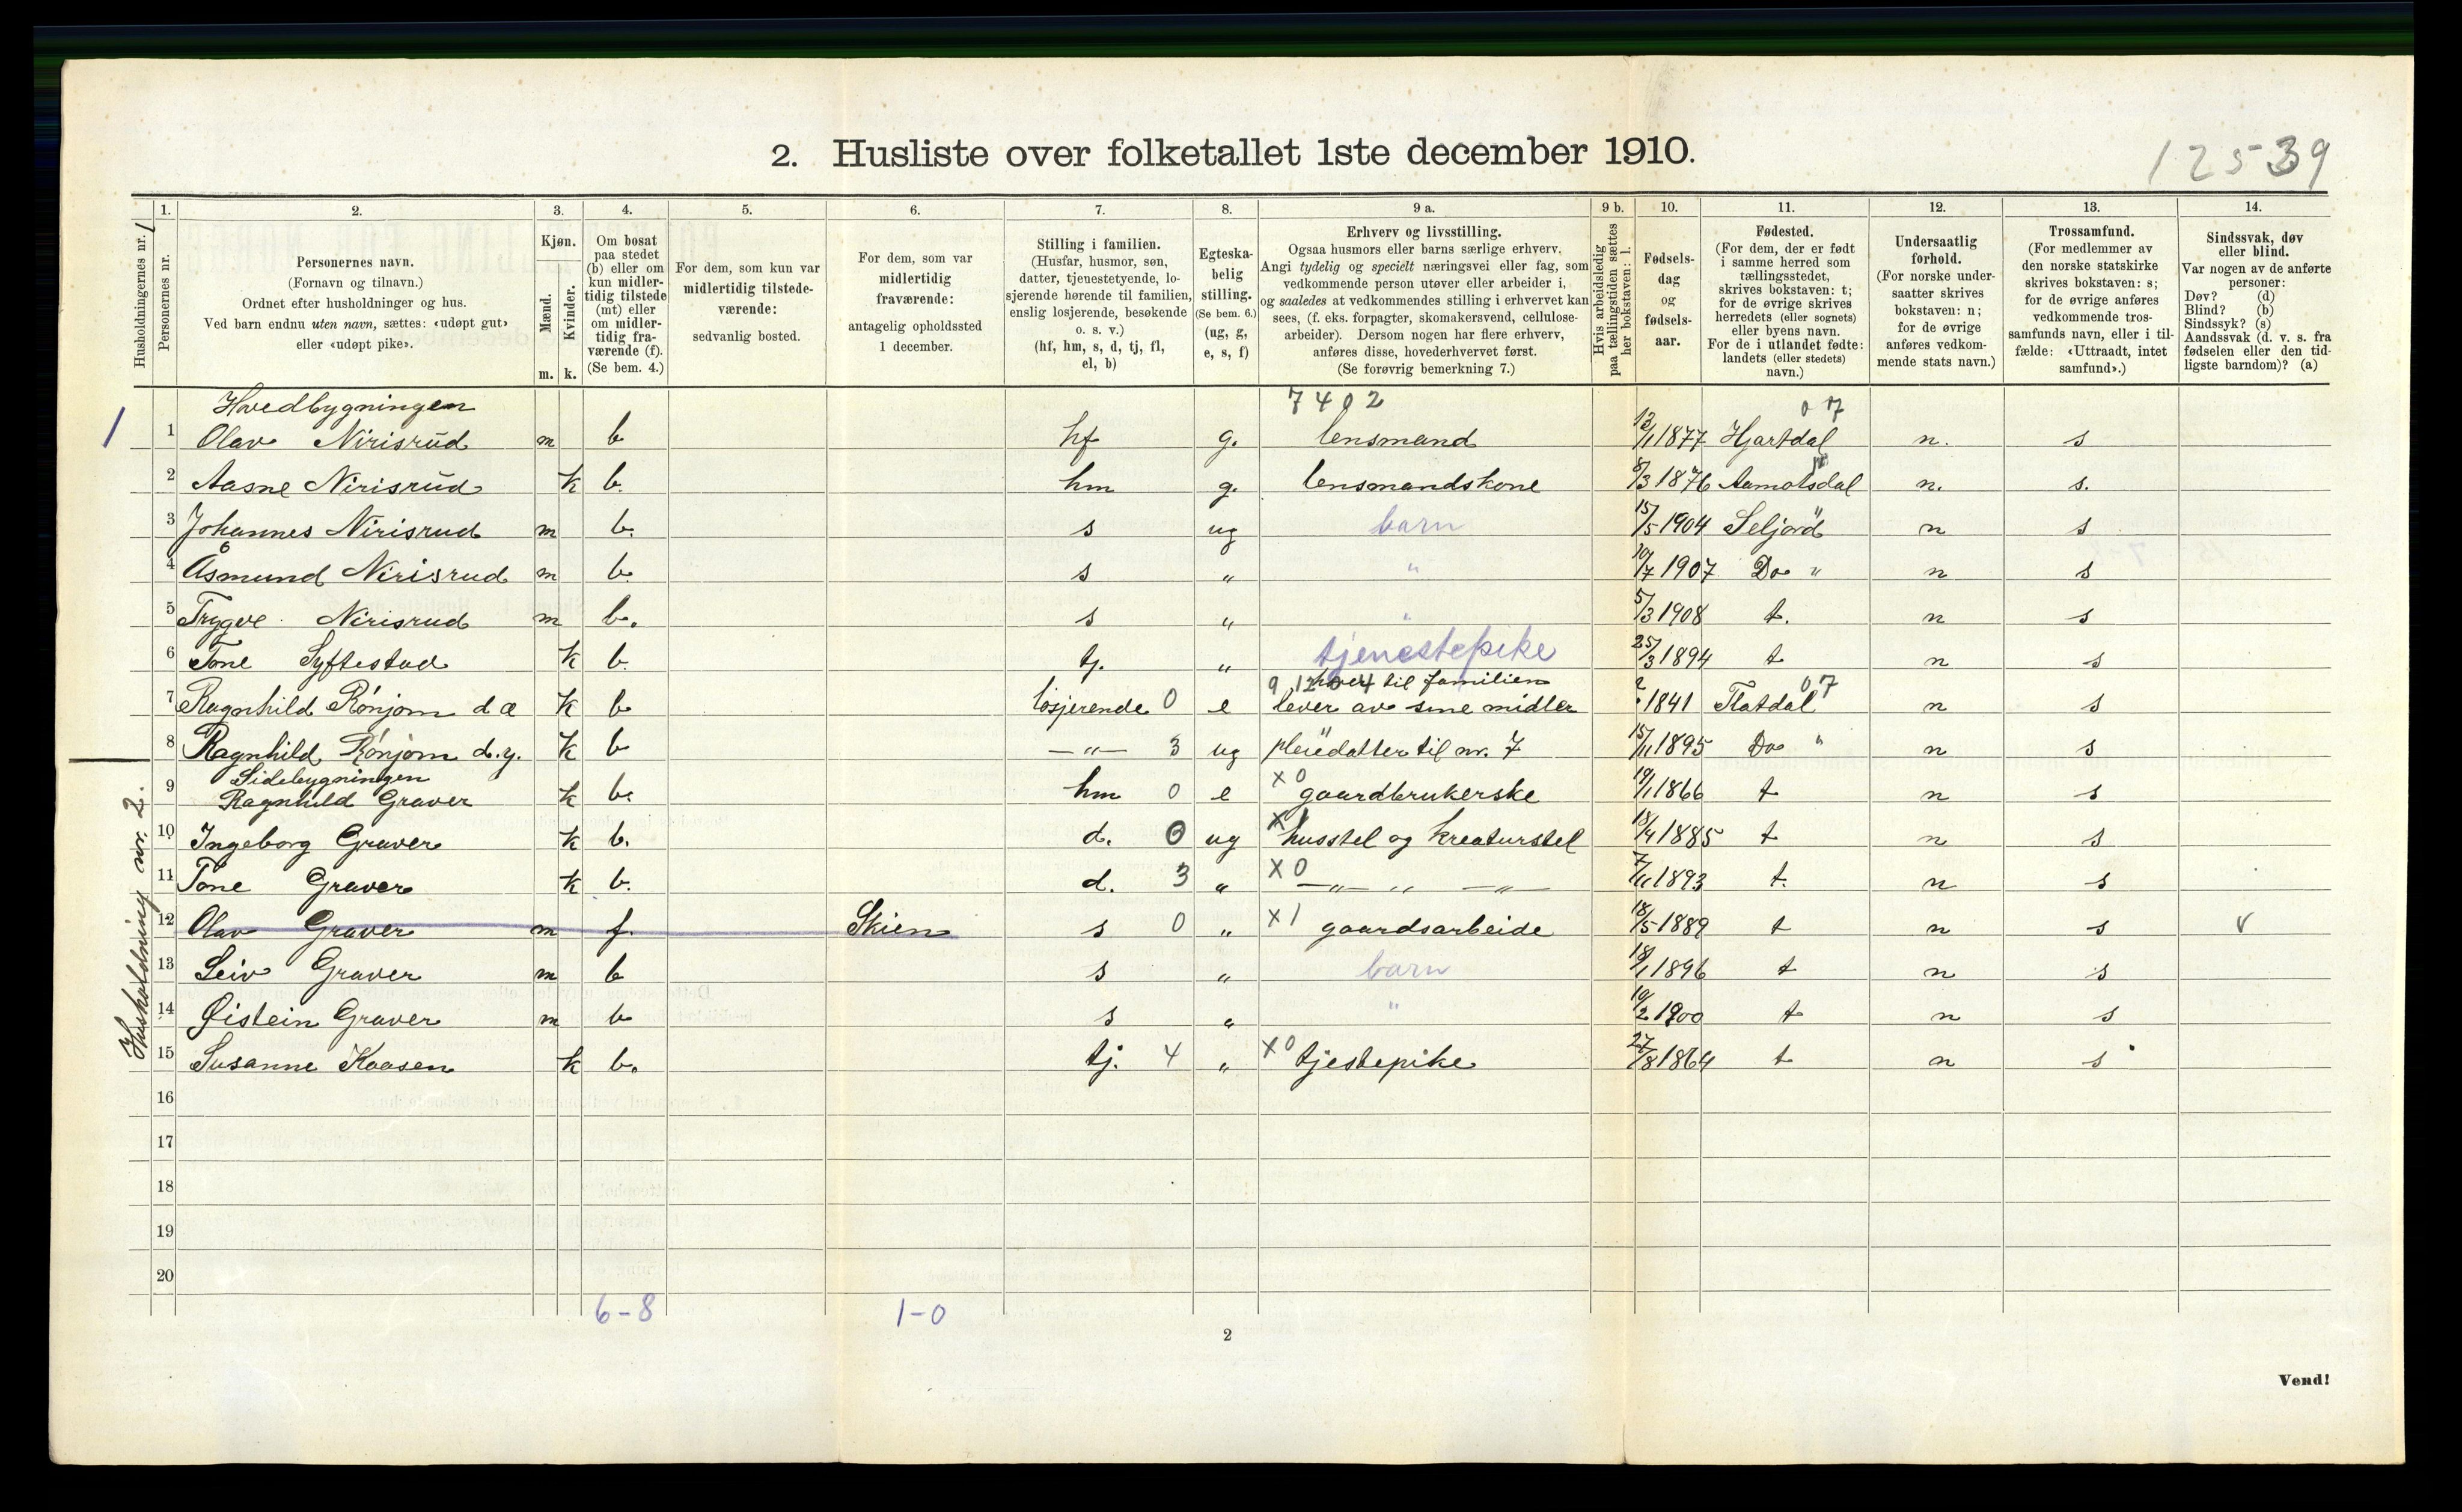 2. Husliste over folketallet 1ste december 1910.
12539
Husholdningernes nr.
1. Personernes nr.
2. Personernes navn. (Fornavn og tilnavn.) Ordnet efter husholdninger og hus. Ved barn endnu uten navn, sættes: «udøpt gut» eller «udøpt pike».
3. Kjøn. Mænd. m. Kvinder. k.
4. Om bosat paa stedet (b) eller om kun midlertidig tilstede (mt) eller om midlertidig fraværende (f). (Se bem. 4.)
5. For dem, som kun var midlertidig tilstedeværende: sedvanlig bosted.
6. For dem, som var midlertidig fraværende: antagelig opholdssted 1 december.
7. Stilling i familien. (Husfar, husmor, søn, datter, tjenestetyende, losjerende hørende til familien, enslig losjerende, besøkende o. s. v.) (hf, hm, s, d, tj, fl, el, b)
8. Egteskabelig stilling. (Se bem. 6.) (ug, g, e, s, f)
9 a. Erhverv og livsstilling. Ogsaa husmors eller barns særlige erhverv. Angi tydelig og specielt næringsvei eller fag, som vedkommende person utøver eller arbeider i, og saaledes at vedkommendes stilling i erhvervet kan sees, (f. eks. forpagter, skomakersvend, cellulosearbeider). Dersom nogen har flere erhverv, anføres disse, hovederhvervet først. (Se forøvrig bemerkning 7.)
9 b. Hvis arbeidsledig paa tællingstiden sættes her bokstaven: l.
10. Fødselsdag og fødselsaar.
11. Fødested. (For dem, der er født i samme herred som tællingsstedet, skrives bokstaven: t; for de øvrige skrives herredets (eller sognets) eller byens navn. For de i utlandet fødte: landets (eller stedets) navn.)
12. Undersaatlig forhold. (For norske undersaatter skrives bokstaven: n; for de øvrige anføres vedkommende stats navn.)
13. Trossamfund. (For medlemmer av den norske statskirke skrives bokstaven: s; for de øvrige anføres vedkommende trossamfunds navn, eller i tilfælde: «Uttraadt, intet samfund».)
14. Sindssvak, døv eller blind. Var nogen av de anførte personer: Døv? (d) Blind? (b) Sindssyk? (s) Aandssvak (d. v. s. fra fødselen eller den tidligste barndom)? (a)
Hovedbygningen 7402 07
1 1 Olav Nirisrud m b hf g. lensmand 13/1 1877 Hjartdal n. s
2 Aasne Nirisrud k b. hm g. lensmandskone 8/3 1876 Aamotsdal n. s.
3 Johannes Nirisrud m b. s ug barn 15/5 1904 Seljord n s
4 Åsmund Nirisrud m b. s " " 10/7 1907 Do " n s
5 Trygve Nirisrud m b. s " " 5/3 1908 t. n s
6 Tone Syftestad k b. tj. " tjenestepike 25/3 1894 t n s
til familien
7 Ragnhild Rónjom d æ k b losjerende 0 e lever av sine midler 1841 Flatdal 07 n s
8 Ragnhild Rónjom d.y. k b —"— 3 ug pleiedatter til nr. 7 15/11 1895 Do " n s
Sidebygningen
9 Ragnhild Graver k b. hm 0 e x0 gaardbrukerske 19/1 1866 t n s
10 Ingeborg Graver k b. d. 0 ug x husstel og kreaturstel 18/4 1885 t n s
11 Tone Graver k b. d. 3 " x0 —"— " —"— 7/11 1893 t. n s
12 Olav Graver m f. Skien s 0 " x1 gaardsarbeide 18/5 1889 t n s v
13 Leiv Graver m b s " barn 18/1 1896 t n s
14 Øistein Graver m b s " " 10/2 1900 t n s
15 Susanne Kaasen k b. tj. 4 " x0 tjestepike 27/8 1864 t n s
16
17
18
19
20
Husholdning nr. 2.
6-8 1-0
2
Vend!